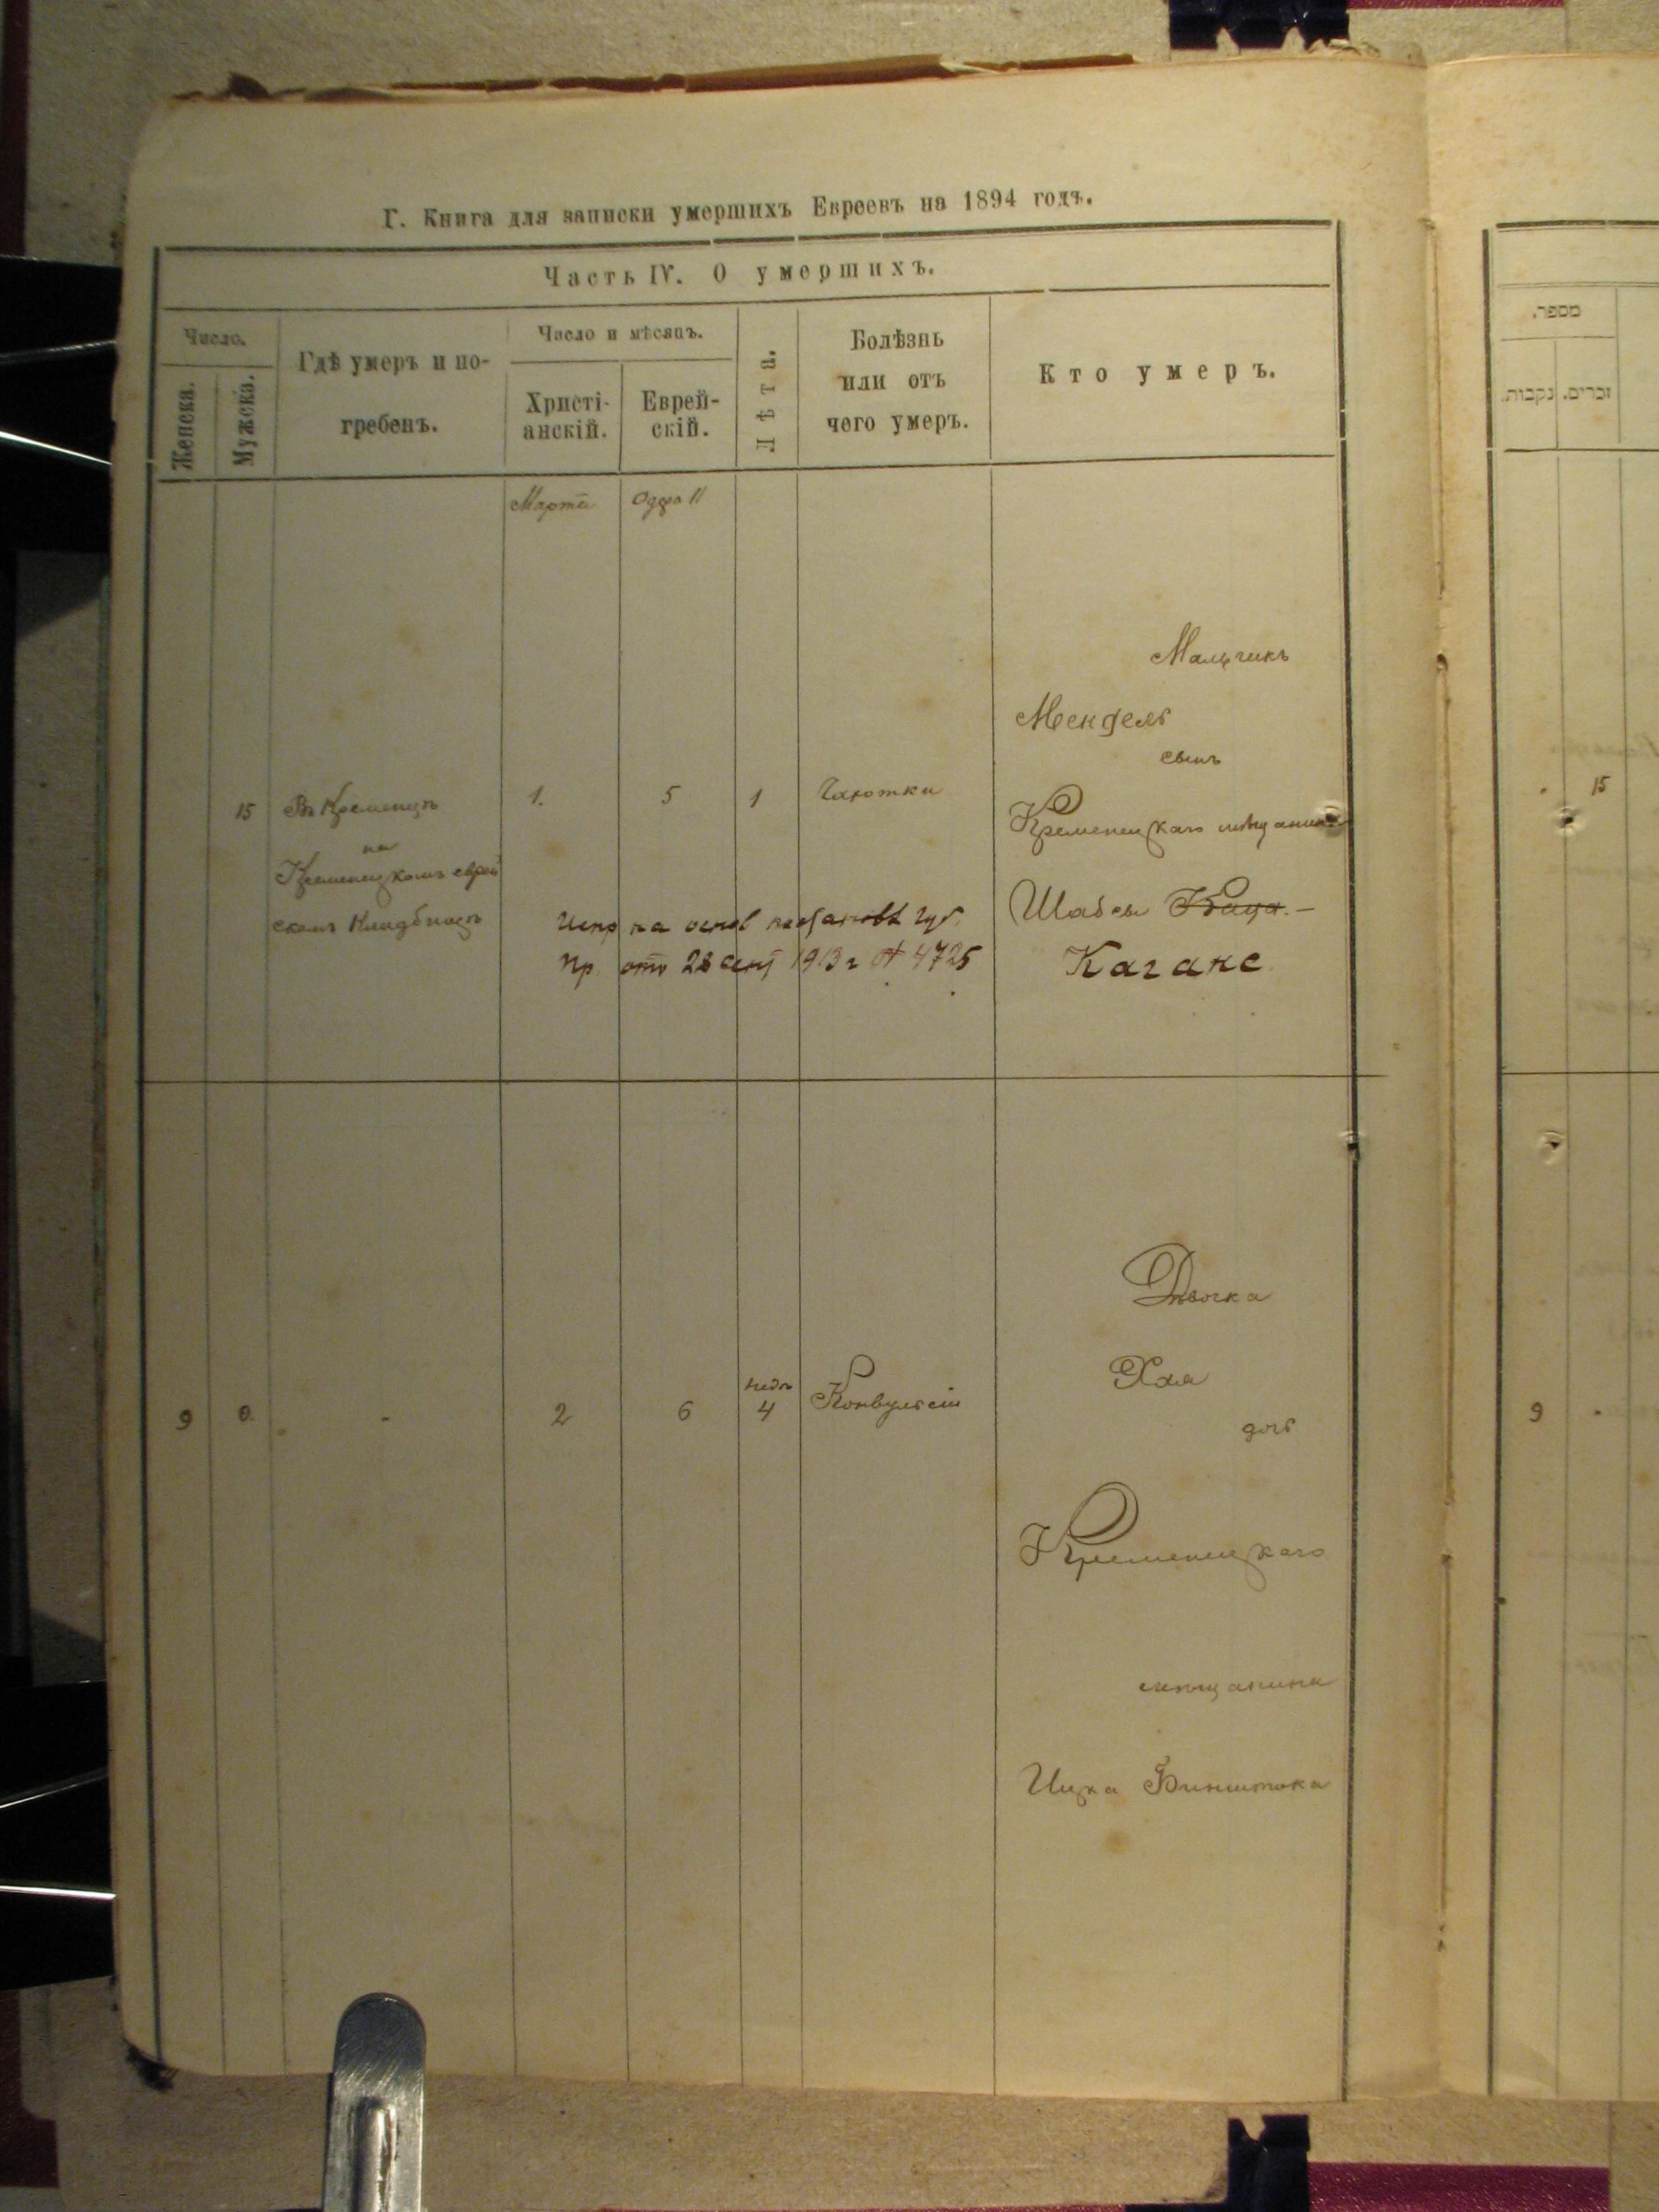 Г. Книга для записки умершихъ Евреевъ на 1894 годъ.
Часть IV. О умершихъ.
Число.
Женска.
Мужска.
Гдѣ умеръ и по-
гребенъ.
Число и мѣсяцъ.
Христі-
анскій.
Еврей-
скій.
Лѣта.
Болѣзнь
или отъ
чего умеръ.
Кто умеръ.
Марта
Одра II
Мальчикъ
Мендель
сынъ
15 Въ Кременцѣ 1. 5 1 Чахотки
Кременецкаго мѣщанина
на
Кременецкомъ еврей
скомъ кладбищѣ
Шабсы Каца. —
Каганс
Испр на основ постановл Губ.
Пр. отъ 28 сент 1913 г № 4725
Дѣвочка
Хая
дочь
9 0. - 2 6 недѣ 4 Конвульсіи
Кременецкаго
мѣщанина
Ицка Бинштока
מספר.
נקבות.
זכרים.
15
9